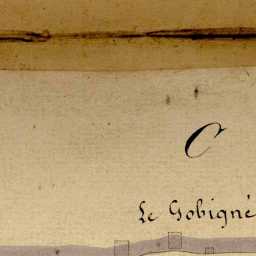 C
Le Gobigné